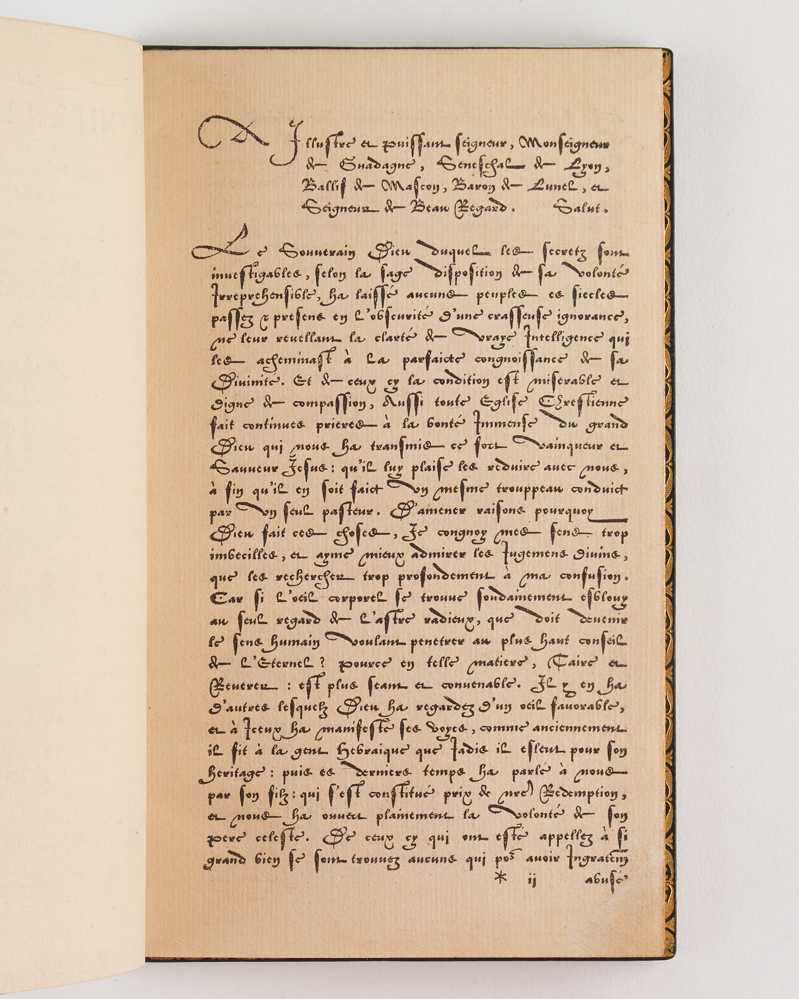 A Illustre et puissant seigneur, Monseigneur
de Guadagne, Seneschal de Lyon,
Ballif de Mascon, Baron de Lunel, et
Seigneur de Beau Regard. Salut.
Le Souverain Dieu duquel les secretz sont
investigables, selon la sage disposition de sa volonté
Irreprehensible, ha laissé aucuns peuples es siecles
passez & presens en l'obscurité d'une crasseuse ignorance,
ne leur revellant la clarté de vraye Intelligence qui
les acheminast à la parfaicte congnoissance de sa
Divinité. Et de ceux cy la condition est miserable et
digne de compassion, Aussi toute Eglise Chrestienne
fait continues prieres à la bonté Immense du grand
Dieu qui nous ha transmis ce fort vainqueur et
Sauveur Jesus: qu'il luy plaise les reduire avec nous,
à fin qu'il en soit faict un mesme trouppeau conduict
par un seul pasteur. D'amener raisons pourquoy
Dieu fait ces choses, Je congnoy mes sens trop
imbecilles, et ayme mieux admirer les Jugemens divins,
que les rechercher trop profondement à ma confusion.
Car si l'oeil corporel se trouve soudainement esblouy
au seul regard de l'astre radieux, que doit devenir
le sens humain voulant penetrer au plus haut conseil
de l'Eternel? pource en telle matiere, Taire et
Reverer : est plus seant et convenable. Il y en ha
d'autres lesquelz Dieu ha regardez d'un oeil favorable,
et à Iceux ha manifesté ses voyes, comme anciennement
il fit à la gent Hebraique que Jadis il esleut pour son
heritage: puis es derniers temps ha parlé à nous
par son filz: qui s'est constitué prix de nre Redemption,
et nous ha ouvert plainement la volonté de son
pere celeste. De ceux cy qui ont esté appellez à si
grand bien se sont trouvez aucuns qui pos avoir Ingratem̃
* ij abusé